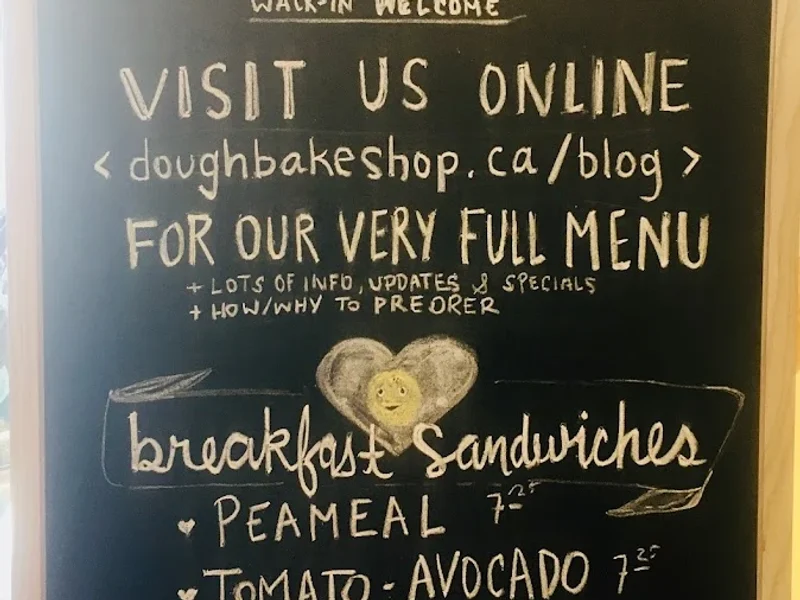 WALK-IN WELCOME
VISIT US ONLINE
< doughbakeshop.ca/blog >
FOR OUR VERY FULL MENU
+ LOTS OF INFO, UPDATES & SPECIALS
+ HOW/WHY TO PREORER
breakfast Sandwiches
♥ PEAMEAL 7.25
♥ TOMATO - AVOCADO 7.25